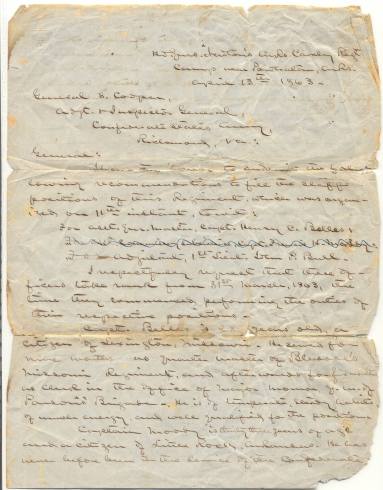 Hd. Qrs. Newton's Ark. Cavalry Regt
Camp near Ark.
April 13th 1863.
General S. Cooper,
Adjt. & Inspector General
Confederate States Army,
Richmond, Va.:
General:
I have the honor to the fol-
lowing recommendations to fill the staff
positions of this Regiment, which was organ-
ized on 11th instant, to wit:
For Asst. Qr. Master, Capt. Henry C. Belles;
For Adjutant, 1st Lieut.
I respectfully request that these of-
ficers take rank from 31st March, 1863, the
time they commenced performing the duties of
their respective positions.
Capt. Belles is years old, a
citizen of Lexington, Missouri. He served for
nine months as private of
Missouri Regiment, and afterwards for months
as clerk in the office of Major
Parsons' Brigade. He is of temperate, steady habits
of much energy and well qualified for the position.
Captain Moody is thirty years of age
and a citizen of Little Rock, Arkansas. He has
never before been in the service of the Confederate